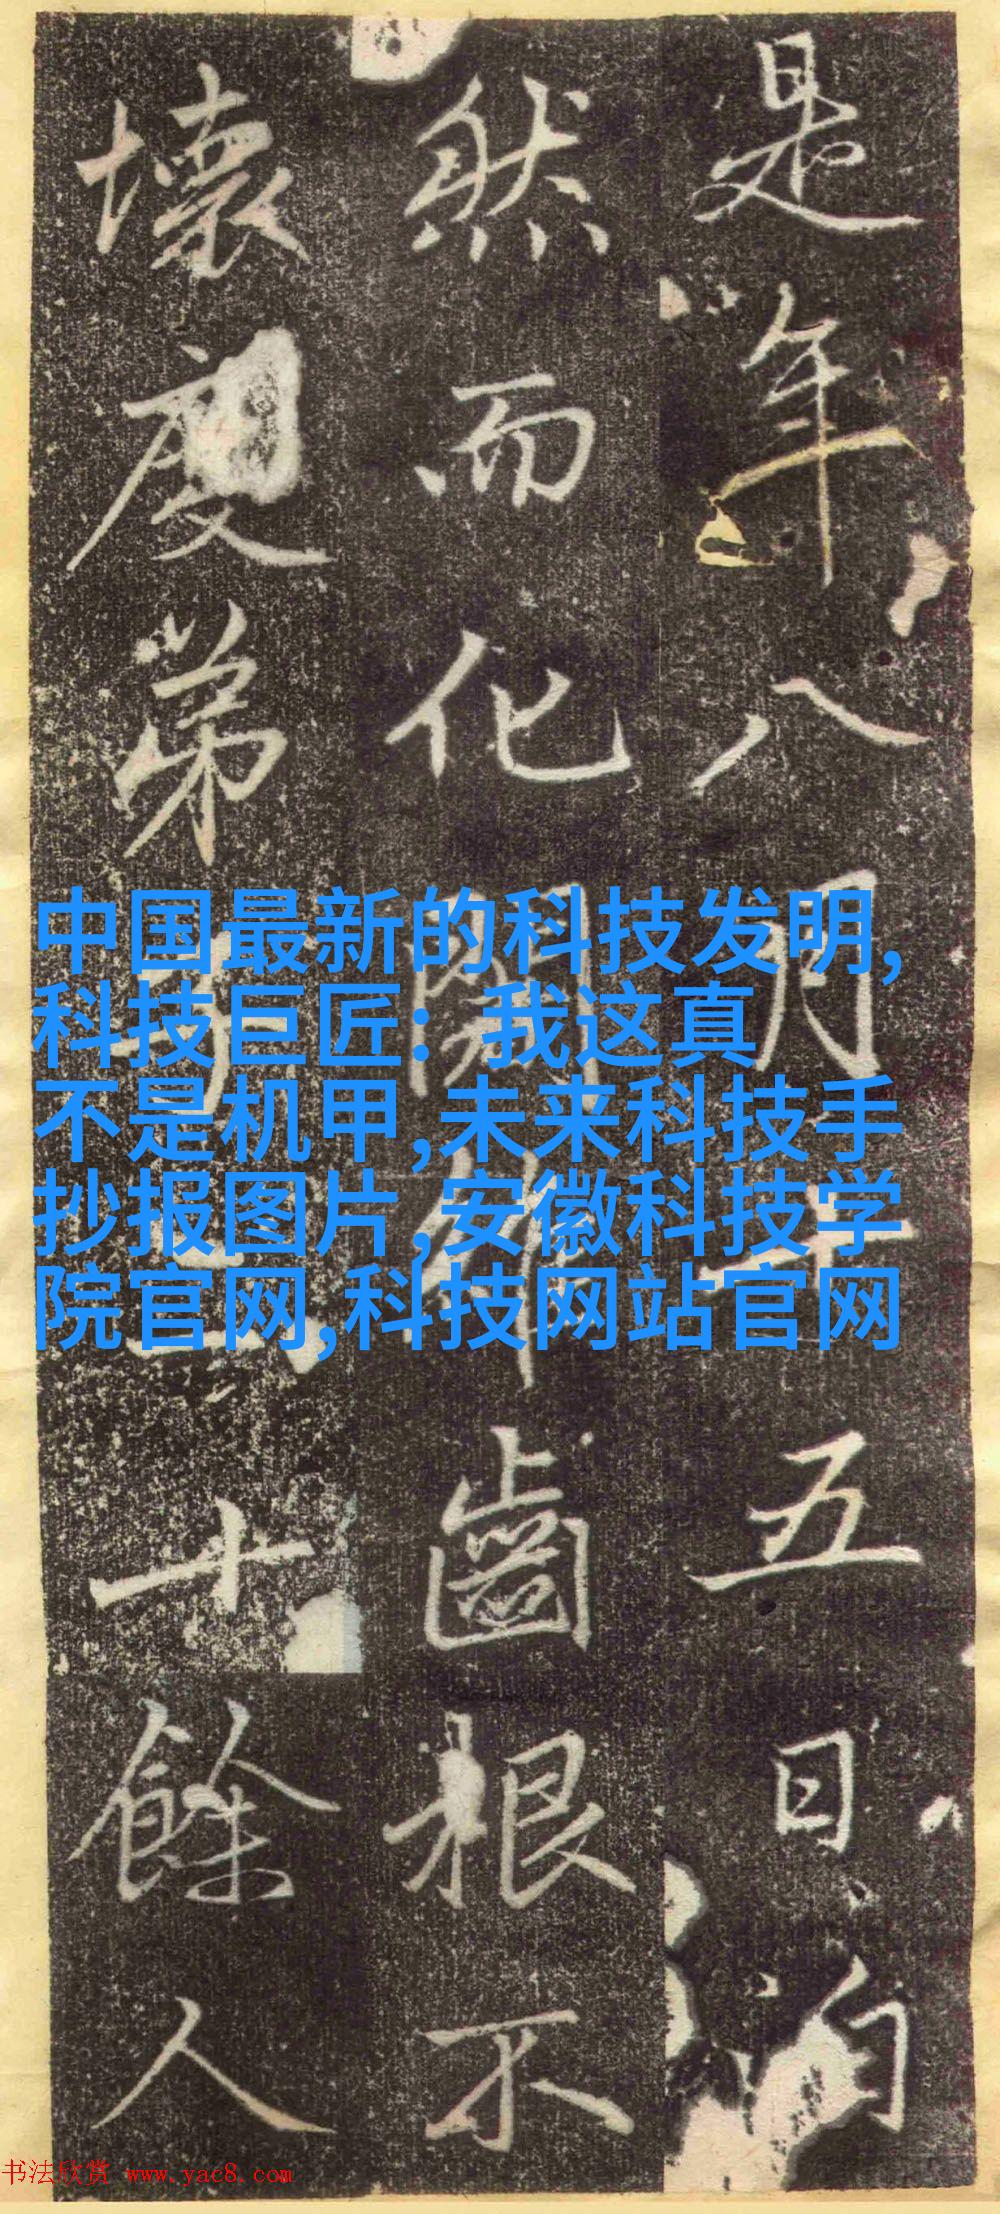 是年八月十五日
然而化開齒根不
壞度弟子二十餘人
中国最新的科技发明,
科技巨匠：我这真
不是机甲,未来科技手
抄报图片,安徽科技学
院官网,科技网站官网
书法欣赏 www.yac8.com